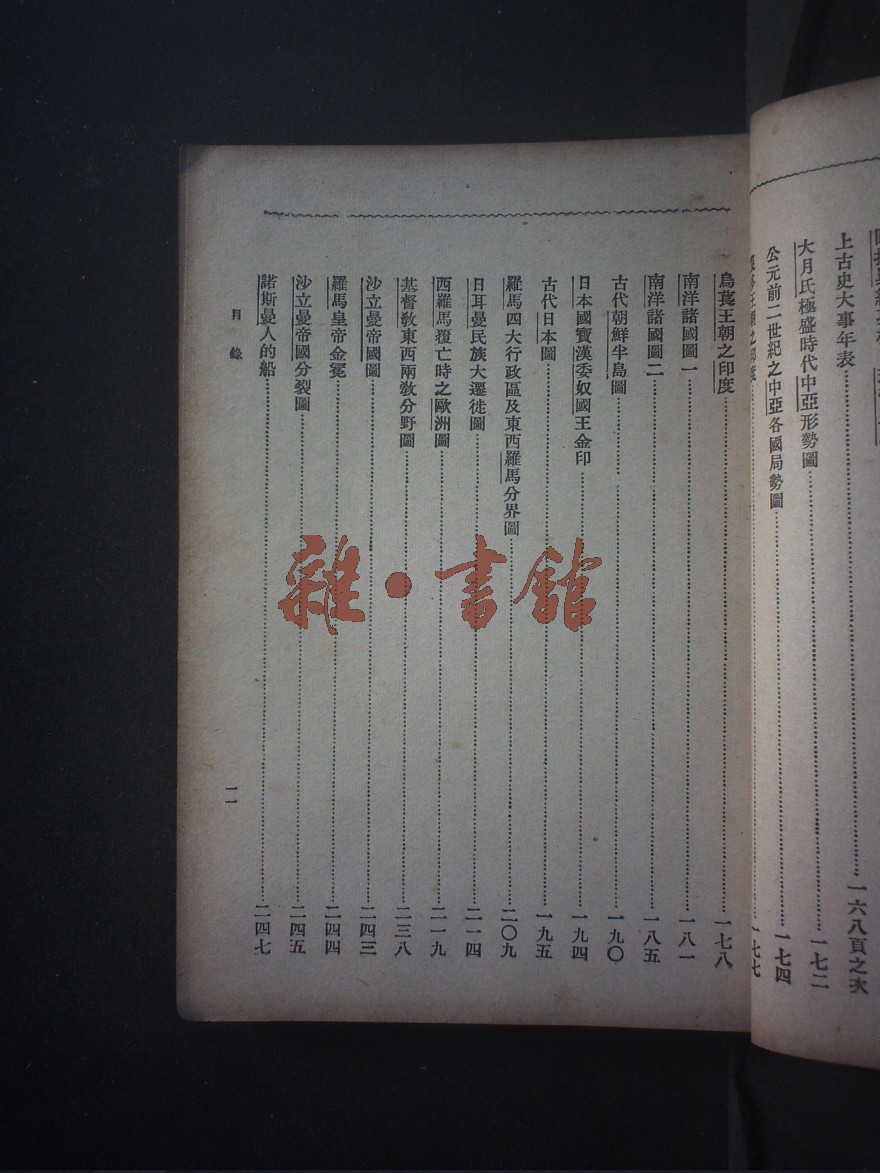 上古史大事年表…………一六八頁之次
大月氏極盛時代中亞形勢圖…………一七二
公元前二世紀之中亞各國局勢圖…………一七四
王朝之印度…………一七七
烏萇王朝之印度…………一七八
南洋諸國圖一…………一八一
南洋諸國圖二…………一八五
古代朝鮮半島圖…………一九〇
日本國寶漢委奴國王金印…………一九四
古代日本圖…………一九五
羅馬四大行政區及東西羅馬分界圖…………二〇九
日耳曼民族大遷徙圖…………二一四
西羅馬覆亡時之歐洲圖…………二一九
基督教東西兩教分野圖…………二三八
沙立曼帝國圖…………二四三
羅馬皇帝金冕…………二四四
沙立曼帝國分裂圖…………二四五
諾斯曼人的船…………二四七
目錄
一一
雜·書館